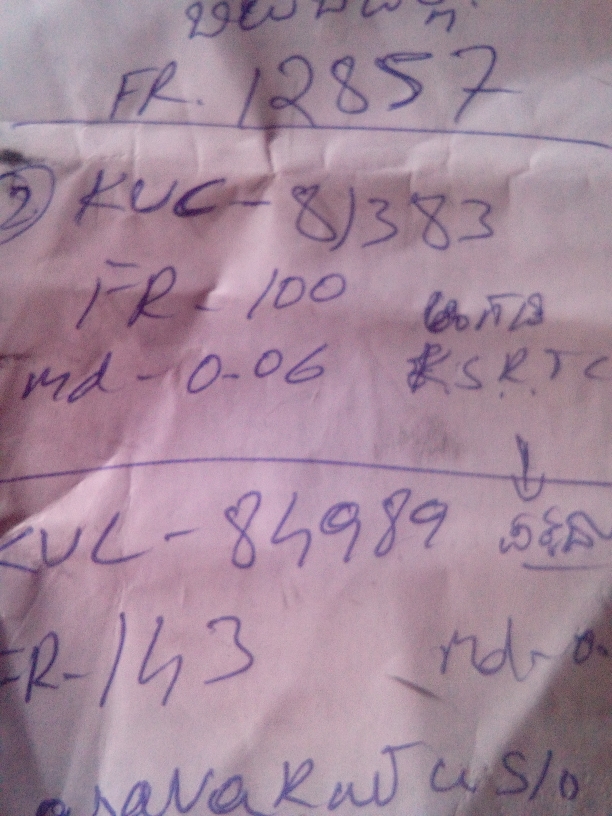 FR. 12857
② KUC - 81383
FR - 100
md - 0-06 KSRTC
KUC - 84989
FR - 143 md - 0.
S/o